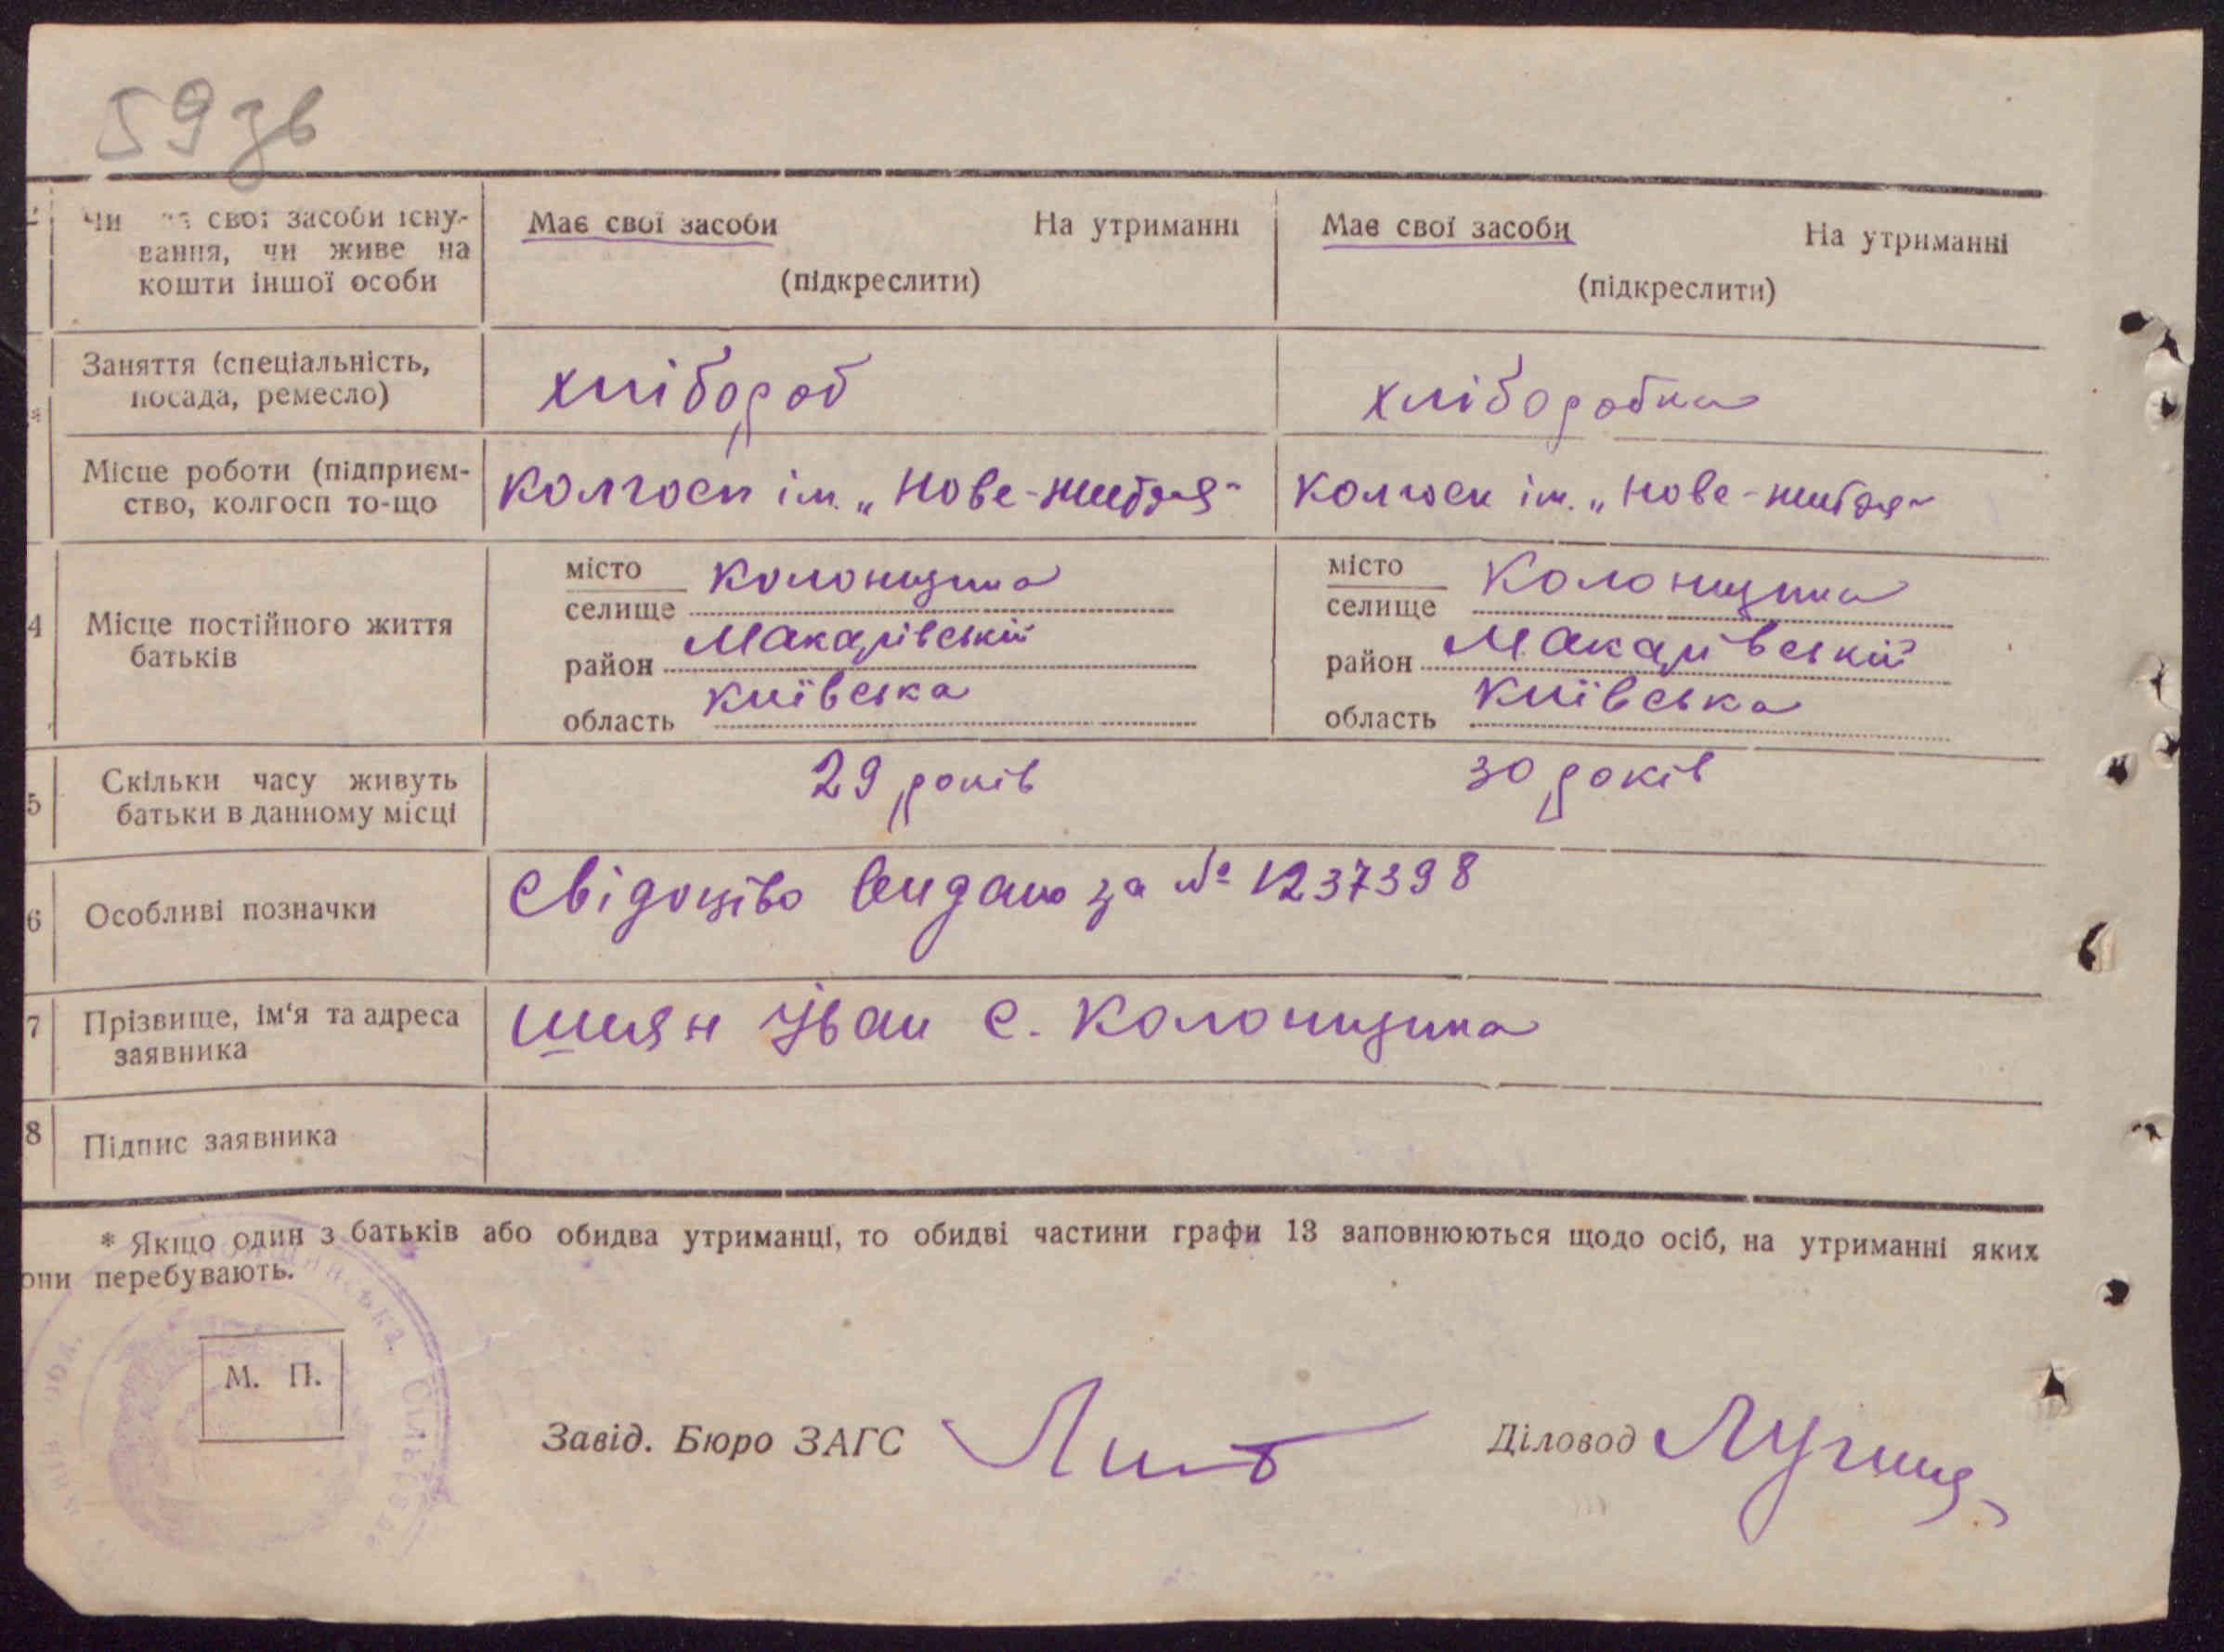 59 зв
Чи свої засоби існу-
вання, чи живе на
кошти іншої особи
Має свої засоби На утриманні
(підкреслити)
Має свої засоби На утриманні
(підкреслити)
Заняття (спеціальність,
посада, ремесло)
хлібороб
хліборобка
Місце роботи (підприєм-
ство, колгосп то-що
колгосп ім. „Нове-життя"
колгосп ім. „Нове-життя"
4
Місце постійного життя
батьків
місто
селище Колонщина
район Макарівській
область Київська
місто
селище Колонщина
район Макарівській
область Київська
5
Скільки часу живуть
батьки в данному місці
29 років
30 років
6
Особливі позначки
Свідоцтво видано за № 1237398
7
Прізвище, ім'я та адреса
заявника
Шиян Іван с. Колонщина
8
Підпис заявника
* Якщо один з батьків або обидва утриманці, то обидві частини графи 13 заповнюються щодо осіб, на утриманні яких
они перебувають.
М. П.
Завід. Бюро ЗАГС
Діловод